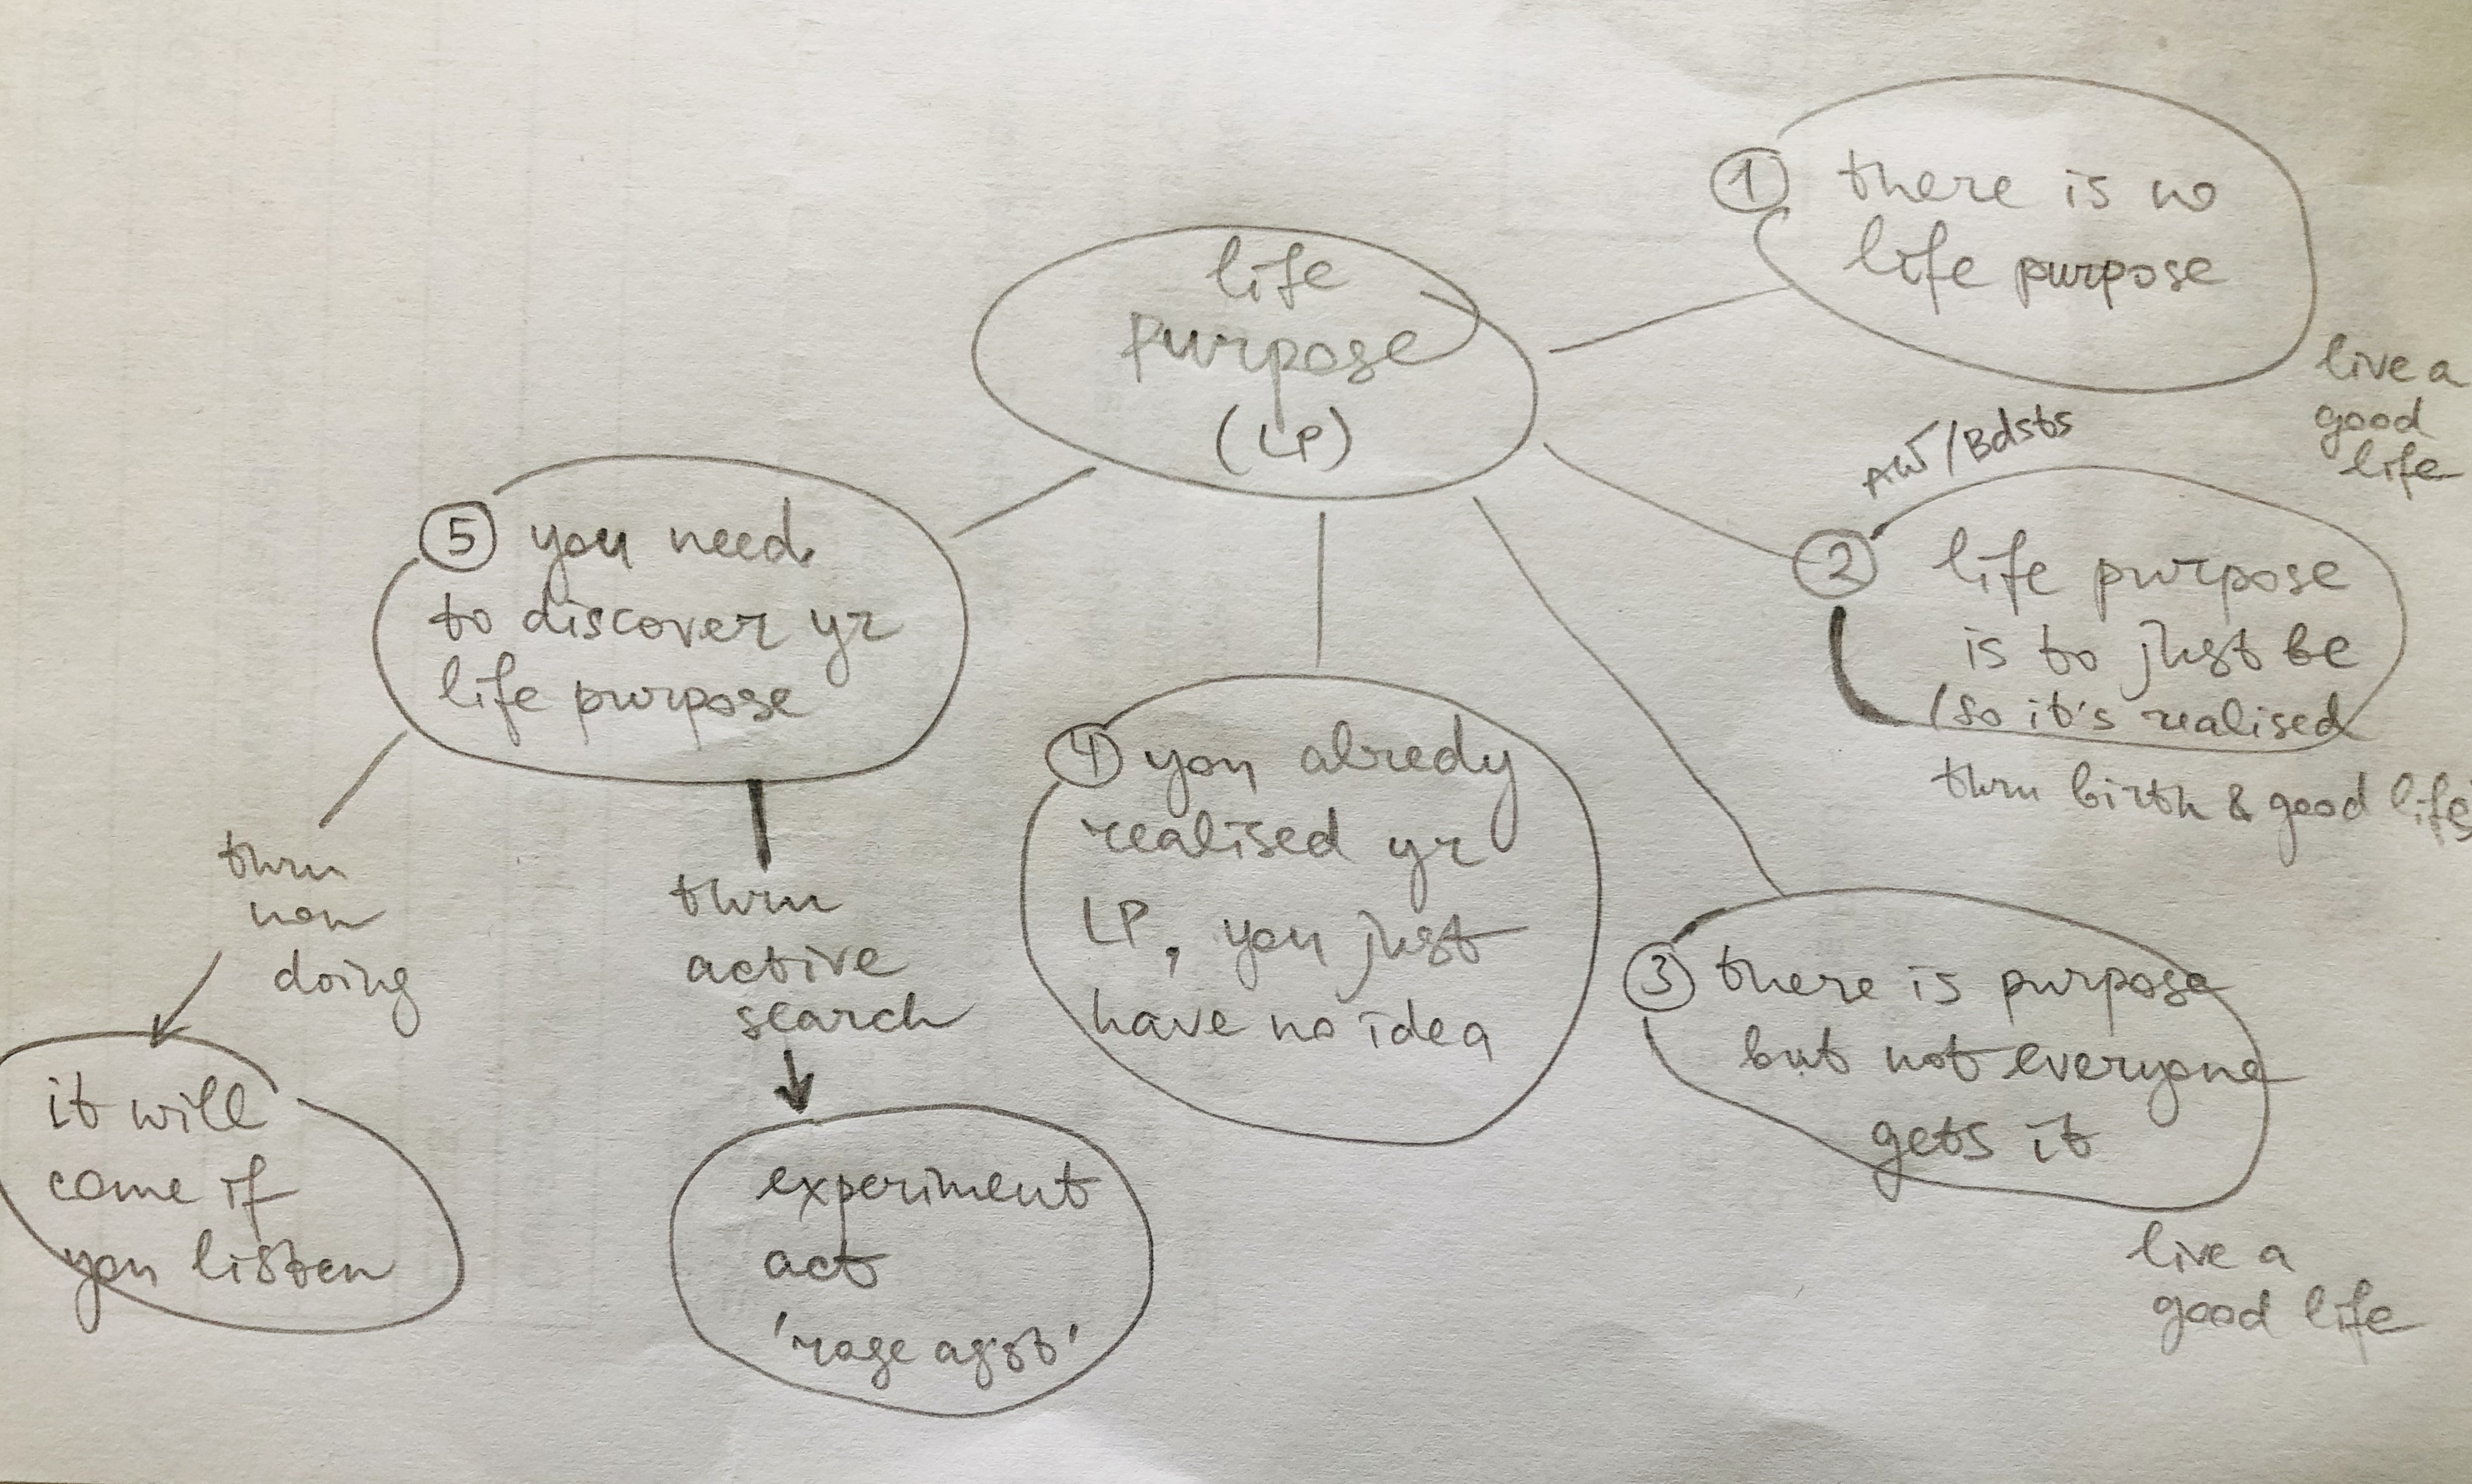 life
purpose
(LP)
① there is no
life purpose
live a
good
life
AW/Bdsts
② life purpose
is to just be
(so it's realised
thru birth & good life)
③ there is purpose
but not everyone
gets it
live a
good life
④ you alredy
realised yr
LP, you just
have no idea
⑤ you need
to discover yr
life purpose
thru
non
doing
it will
come if
you listen
thru
active
search
experiment
act
'rage agst'